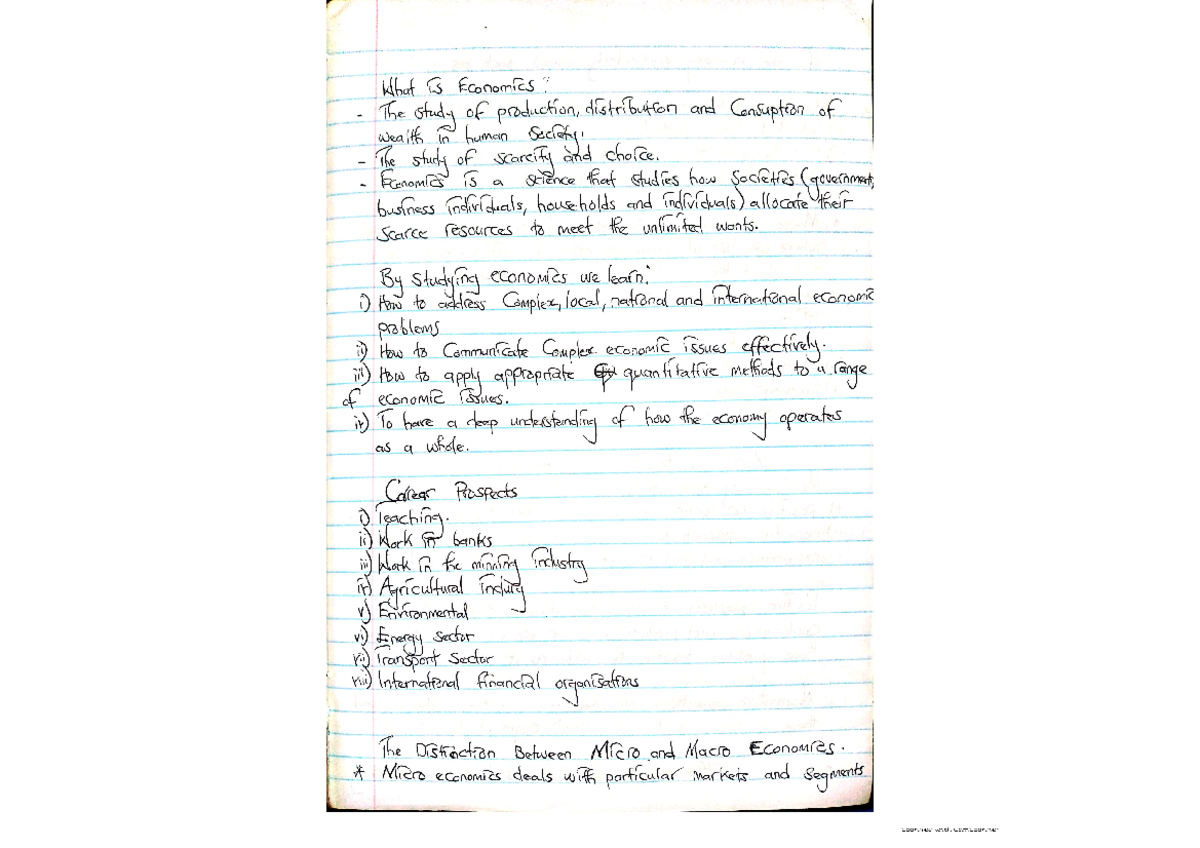 What is Economics?
- The study of production, distribution and Consuption of
wealth in human Society.
- The study of scarcity and choice.
- Economics is a science that studies how Societies (government,
business individuals, households and individuals) allocate their
Scarce resources to meet the unlimited wants.
By Studying economics we learn:
i) How to address Complex, local, national and international economic
problems
ii) How to Communicate Complex economic issues effectively.
iii) How to apply appropriate quantitative methods to a range
of economic issues.
iv) To have a deep understanding of how the economy operates
as a whole.
Career Prospects
i) Teaching.
ii) Work in banks
iii) Work in the minning industry
iv) Agricultural
v) Environmental
vi) Energy Sector
vii) Transport Sector
viii) International financial organisations
The Distinction Between Micro and Macro Economics.
* Micro economics deals with particular markets and segments